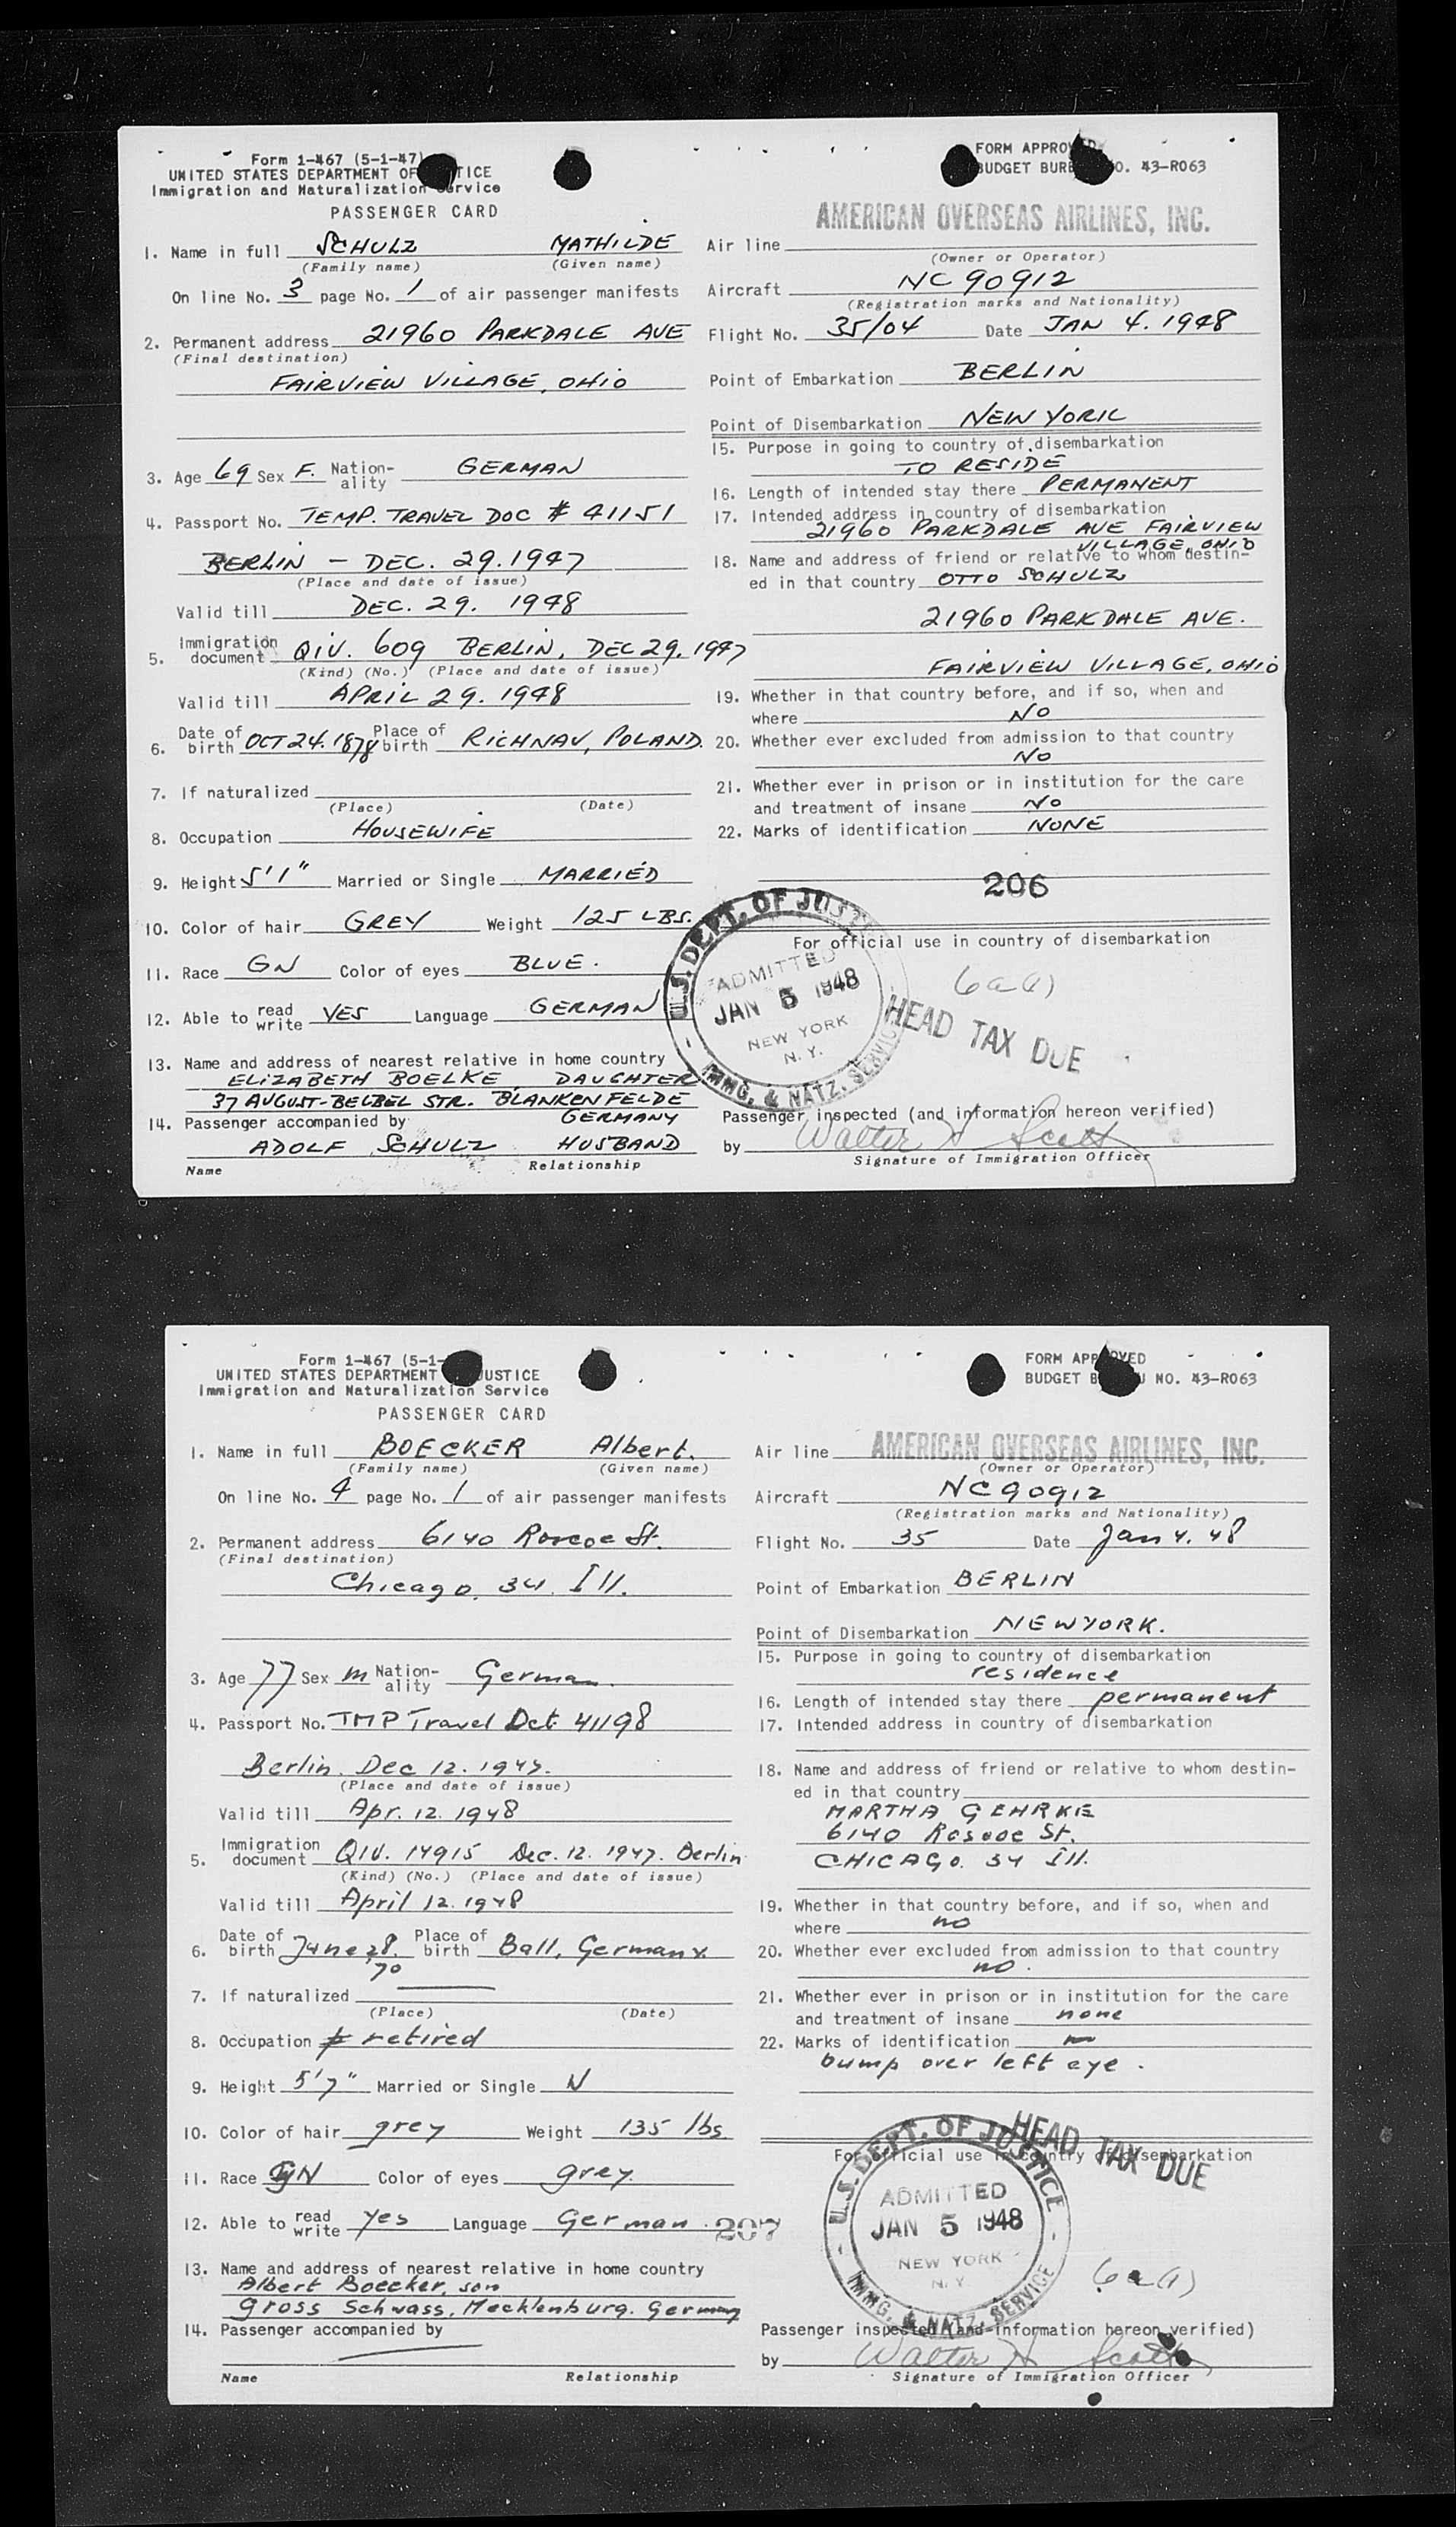 Form I-467 (5-1-47)
UNITED STATES DEPARTMENT OF JUSTICE
Immigration and Naturalization Service
PASSENGER CARD
FORM APPROVED
BUDGET BUREAU NO. 43-R063
1. Name in full SCHULZ MATHILDE
(Family name) (Given name)
On line No. 3 page No. 1 of air passenger manifests
2. Permanent address 21960 PARKDALE AVE
(Final destination)
FAIRVIEW VILLAGE, OHIO
3. Age 69 Sex F. Nation-ality GERMAN
4. Passport No. TEMP. TRAVEL DOC # 41151
BERLIN - DEC. 29. 1947
(Place and date of issue)
Valid till DEC. 29. 1948
5. Immigration document QIV. 609 BERLIN, DEC 29. 1947
(Kind) (No.) (Place and date of issue)
Valid till APRIL 29. 1948
6. Date of birth OCT 24. 1878 Place of birth RICHNAV, POLAND.
7. If naturalized
(Place) (Date)
8. Occupation HOUSEWIFE
9. Height 5'1" Married or Single MARRIED
10. Color of hair GREY Weight 125 LBS.
11. Race GN Color of eyes BLUE.
12. Able to read write YES Language GERMAN
13. Name and address of nearest relative in home country
ELIZABETH BOELKE, DAUGHTER
37 AUGUST-BELBEL STR. BLANKENFELDE
GERMANY
14. Passenger accompanied by
ADOLF SCHULZ HUSBAND
Name Relationship
AMERICAN OVERSEAS AIRLINES, INC.
Air line
(Owner or Operator)
Aircraft NC 90912
(Registration marks and Nationality)
Flight No. 35/04 Date JAN 4. 1948
Point of Embarkation BERLIN
Point of Disembarkation NEW YORK
15. Purpose in going to country of disembarkation
TO RESIDE
16. Length of intended stay there PERMANENT
17. Intended address in country of disembarkation
21960 PARKDALE AVE FAIRVIEW
VILLAGE, OHIO
18. Name and address of friend or relative to whom destin-
ed in that country OTTO SCHULZ
21960 PARKDALE AVE.
FAIRVIEW VILLAGE, OHIO
19. Whether in that country before, and if so, when and
where NO
20. Whether ever excluded from admission to that country
NO
21. Whether ever in prison or in institution for the care
and treatment of insane NO
22. Marks of identification NONE
206
For official use in country of disembarkation
6a(1)
U.S. DEPT. OF JUSTICE
ADMITTED
JAN 5 1948
NEW YORK
N.Y.
IMMG. & NATZ. SERVICE
HEAD TAX DUE
Passenger inspected (and information hereon verified)
by Walter H Scott
Signature of Immigration Officer
Form I-467 (5-1-
UNITED STATES DEPARTMENT JUSTICE
Immigration and Naturalization Service
PASSENGER CARD
FORM APPROVED
BUDGET BUREAU NO. 43-R063
1. Name in full BOECKER Albert.
(Family name) (Given name)
On line No. 4 page No. 1 of air passenger manifests
2. Permanent address 6140 Roscoe St.
(Final destination)
Chicago. 34. Ill.
3. Age 77 Sex m Nation-ality German.
4. Passport No. TMP Travel Dct. 41198
Berlin. Dec 12. 1947.
(Place and date of issue)
Valid till Apr. 12. 1948
5. Immigration document QIV. 14915 Dec. 12. 1947. Berlin
(Kind) (No.) (Place and date of issue)
Valid till April 12. 1948
6. Date of birth June 28. '70 Place of birth Ball, Germany.
7. If naturalized
(Place) (Date)
8. Occupation retired
9. Height 5'7" Married or Single W
10. Color of hair grey Weight 135 lbs
11. Race GN Color of eyes grey.
12. Able to read write yes Language German.
207
13. Name and address of nearest relative in home country
Albert Boecker, son
gross Schwass, Mecklenburg. Germany
14. Passenger accompanied by
Name Relationship
Air line AMERICAN OVERSEAS AIRLINES, INC.
(Owner or Operator)
Aircraft NC90912
(Registration marks and Nationality)
Flight No. 35 Date Jan 4. 48
Point of Embarkation BERLIN
Point of Disembarkation NEWYORK.
15. Purpose in going to country of disembarkation
residence
16. Length of intended stay there permanent
17. Intended address in country of disembarkation
18. Name and address of friend or relative to whom destin-
ed in that country
MARTHA GEHRKE
6140 Roscoe St.
CHICAGO. 34 Ill.
19. Whether in that country before, and if so, when and
where no
20. Whether ever excluded from admission to that country
no.
21. Whether ever in prison or in institution for the care
and treatment of insane none
22. Marks of identification
bump over left eye.
For official use in country of disembarkation
HEAD TAX DUE
U.S. DEPT. OF JUSTICE
ADMITTED
JAN 5 1948
NEW YORK
N.Y.
IMMG. & NATZ. SERVICE
6a(1)
Passenger inspected (and information hereon verified)
by Walter H Scott
Signature of Immigration Officer